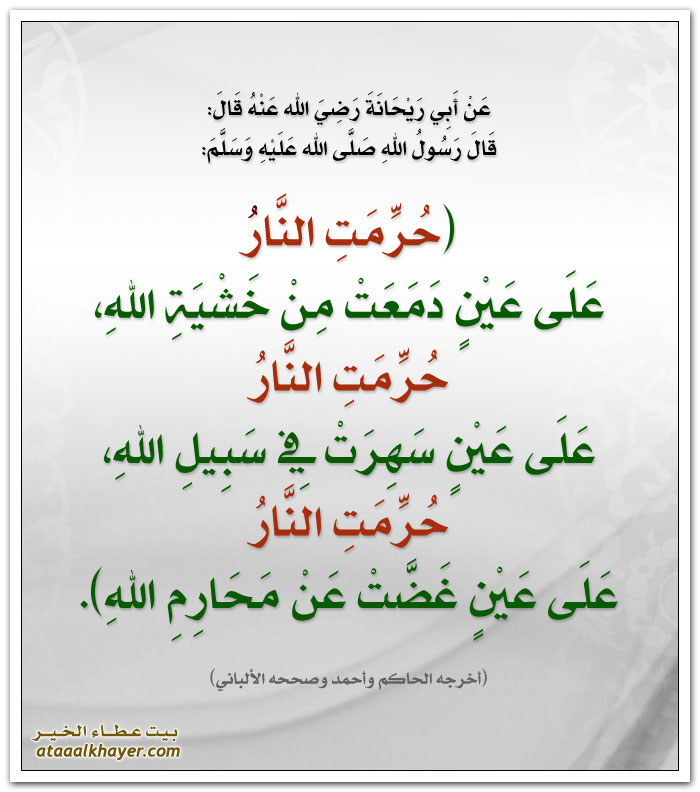 عَنْ أَبِي رَيْحَانَةَ رَضِيَ الله عَنْهُ قَالَ:
قَالَ رَسُولُ اللهِ صَلَّى الله عَلَيْهِ وَسَلَّمَ:
(حُرِّمَتِ النَّارُ
عَلَى عَيْنٍ دَمَعَتْ مِنْ خَشْيَةِ اللهِ،
حُرِّمَتِ النَّارُ
عَلَى عَيْنٍ سَهِرَتْ فِي سَبِيلِ اللهِ،
حُرِّمَتِ النَّارُ
عَلَى عَيْنٍ غَضَّتْ عَنْ مَحَارِمِ اللهِ).
(أخرجه الحاكم وأحمد وصححه الألباني)
بيت عطاء الخير
ataaalkhayer.com